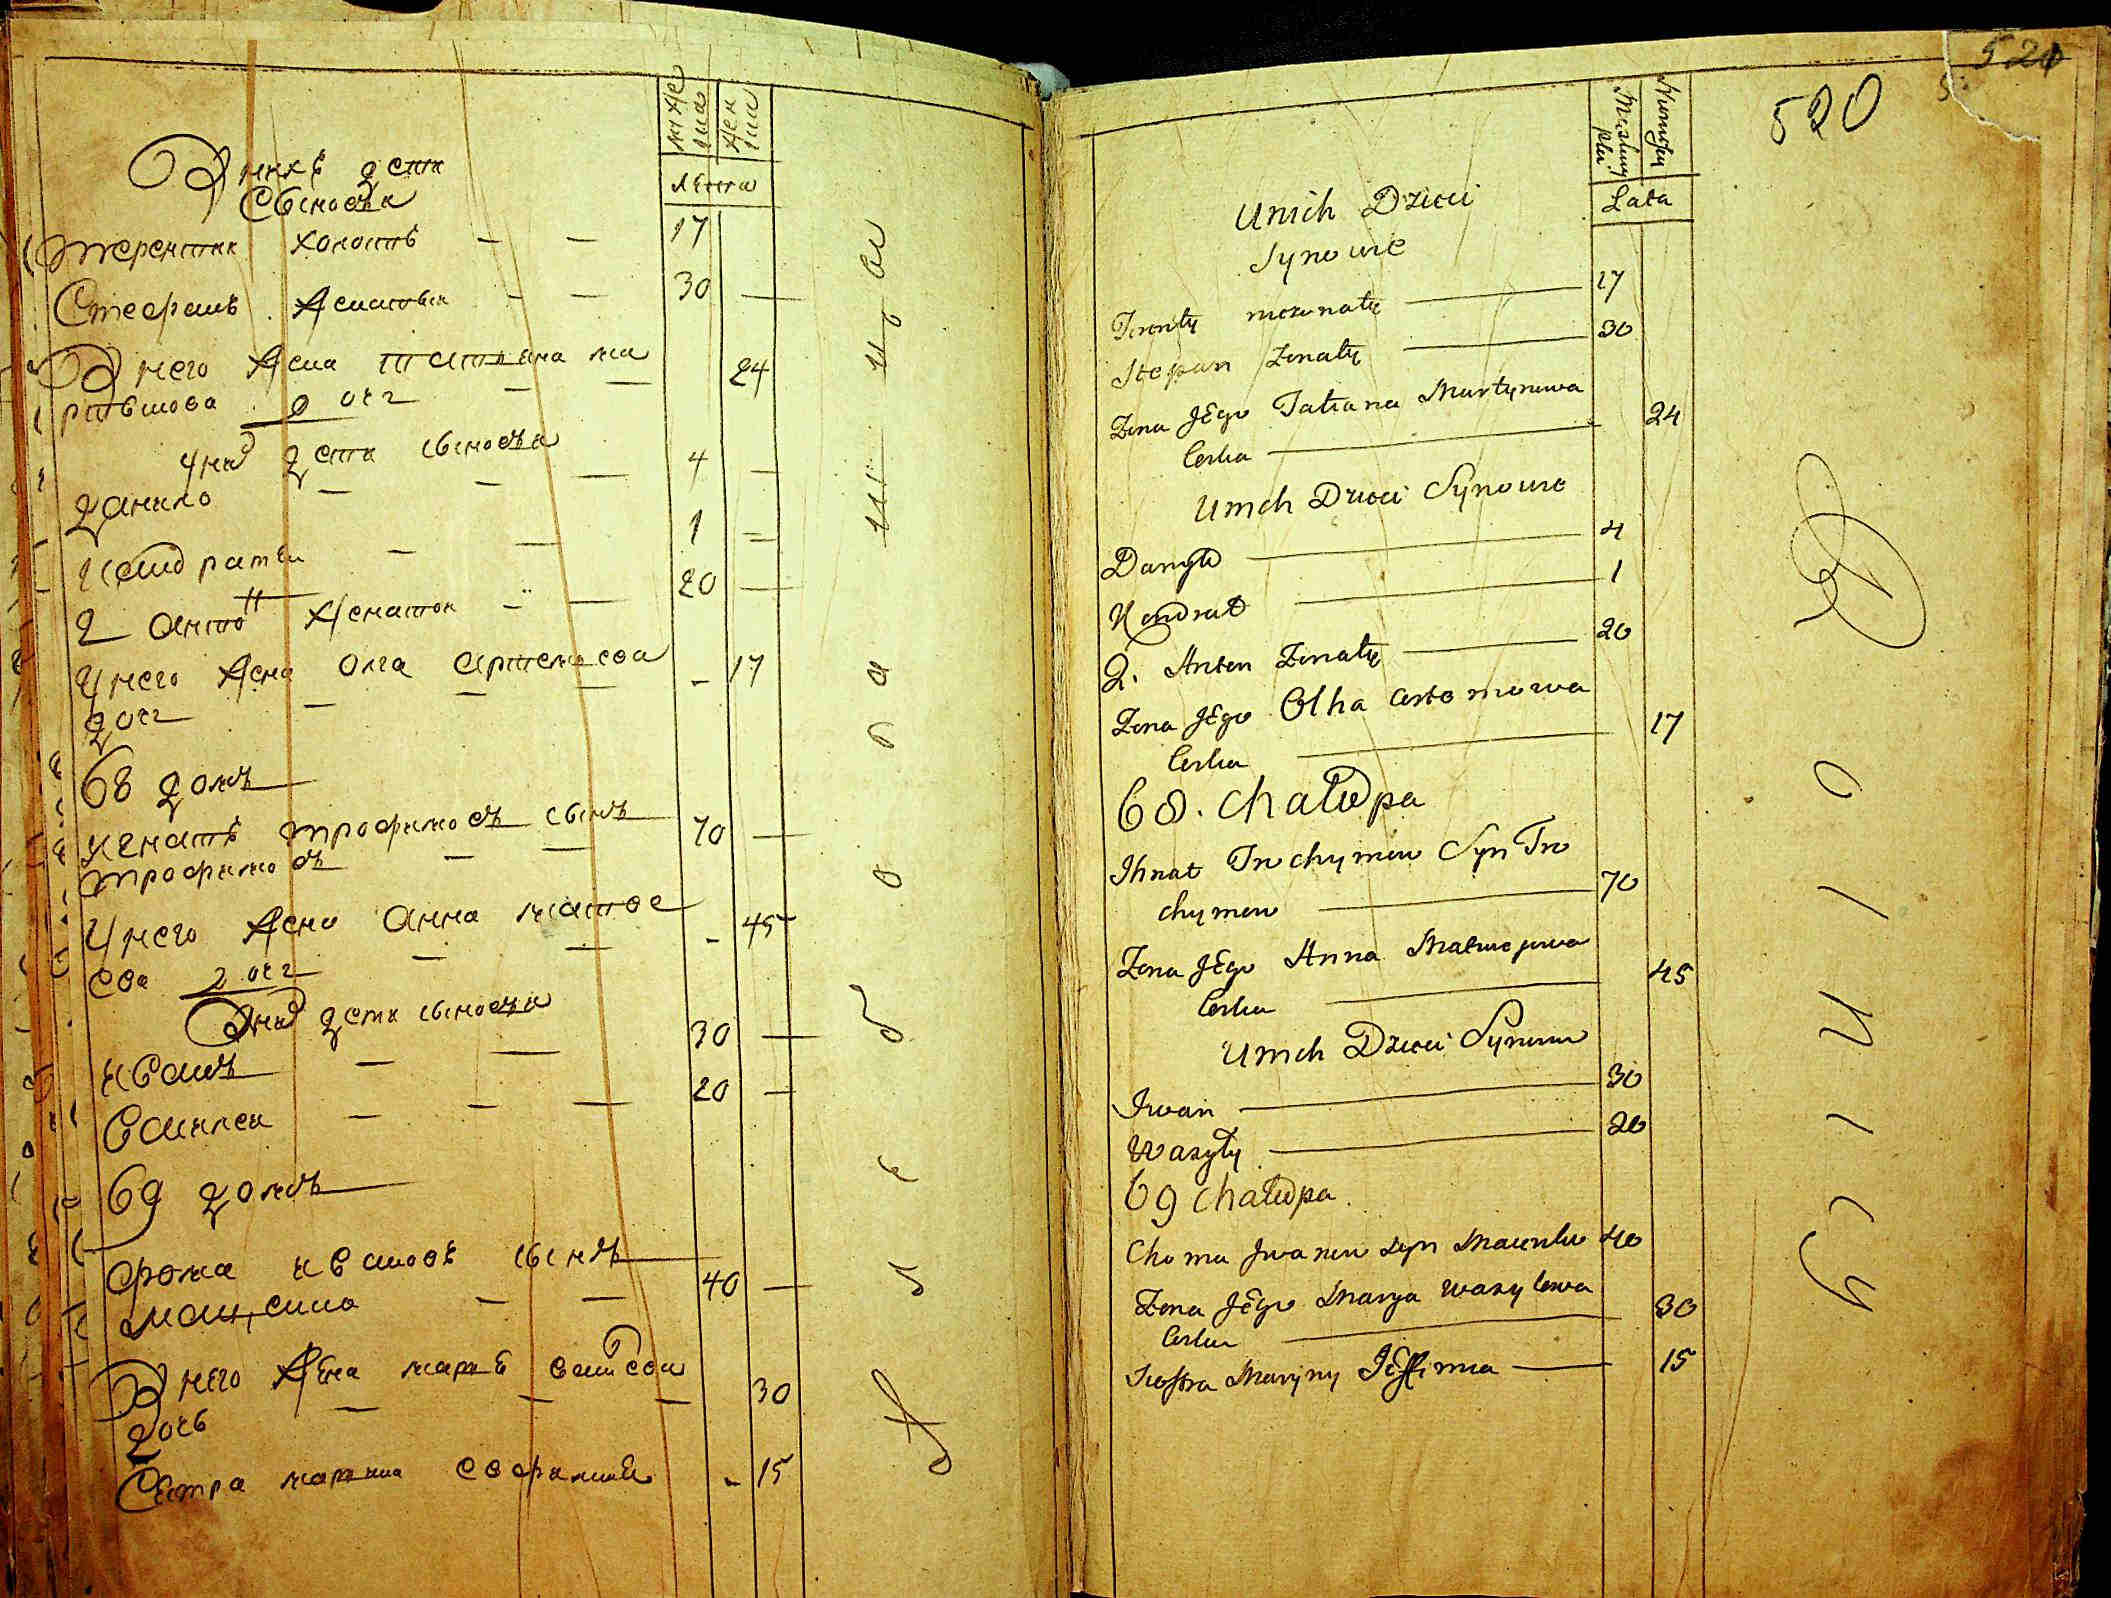 мӱже
ска
жен
ска
Лета
У нихъ дети
Сыновья
Терентии холостъ — — 17
Стефанъ женатыи — — 30
У него жена татияна ма
ртынова дочь — — 24
У них дети сыновья
данило — — — 4
Кондратеи — — 1
2 антонъ женатои — — 20
У него жена олга артемова — 17
дочь — — —
68 домъ
игнатъ трофимовъ сынъ
трофимовъ — — 70
У него жена анна матве
ева дочь — — 45
У них дети сыновья
иванъ — — 30
Василеи — — — 20
69 домъ
фома ивановъ сынъ
— — 40
У него жена маря
дочь — — — 30
Сестра марина ефимия — 15
520
520
Męskiey
płci
Żeńskiey
Lata
U nich Dzieci
Synowie
Terenty nieżonaty 17
Stepan Żonaty 30
Żona Jego Tatiana Martynowa
Corka 24
U nich Dzieci Synowie
Danyło 4
Kondrat 1
2. Anton Żonaty 20
Żona Jego Olha Artemowa
Corka 17
68. Chałupa
Ihnat Trochymow Syn Tro
chymow 70
Żona Jego Anna Matwejowa
Corka 45
U nich Dzieci Synowie
Iwan 30
Wasyly 20
69 Chałupa
Choma Iwanow Syn 40
Żona Jego Marya Wasylowa
Corka 30
Siostra Maryny Jeffimia 15